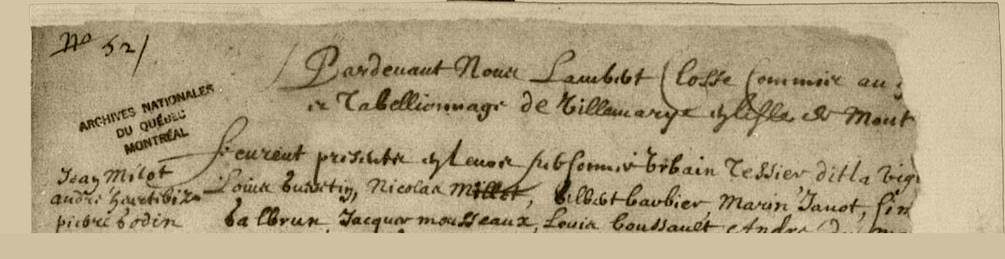 No 52/
Pardevant Nous Lambert Closse Commis au
et Tabellionnage de Villemarye en lisle de Mont
ARCHIVES NATIONALES
DU QUÉBEC
MONTRÉAL
furent presents en leurs Urbain Tessier dit la Vig
Jean Milot
Louis Nicolas Millot, Gilbert barbier Marin Janot, Sim
andré
pierre Godin
Galbrun, Jacques mousseaux, Louis Boussault André